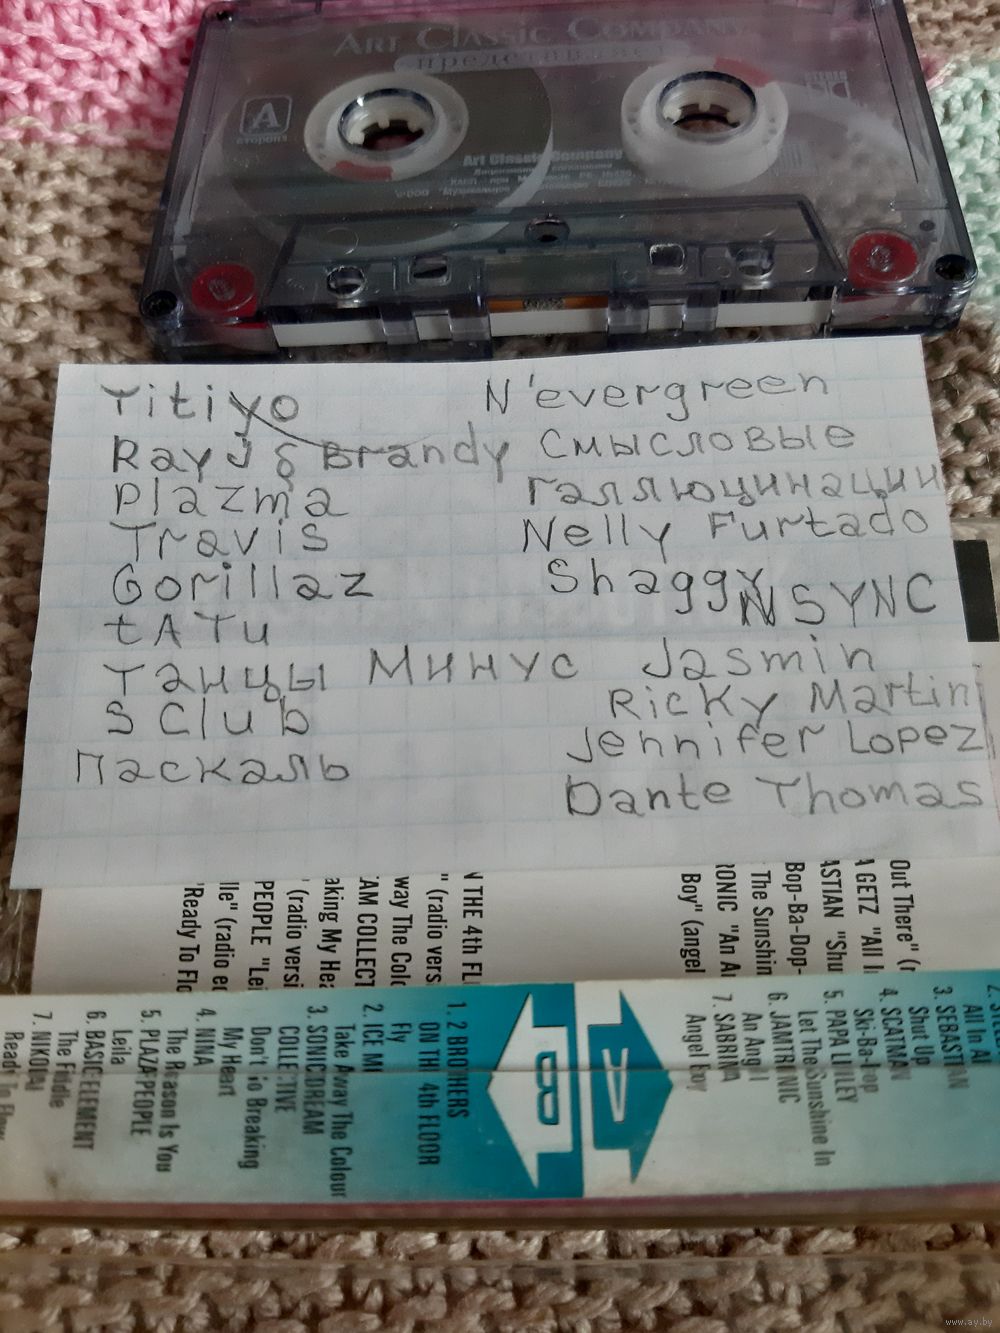 ART CLASSIC COMPANY
представляет
A
сторона
STEREO
Art Classic Company
Yitiyo
Ray J & Brandy
Plazma
Travis
Gorillaz
tATu
Танцы Минус
S Club
Паскаль
N'evergreen
Смысловые
галлюцинации
Nelly Furtado
Shaggy
NSYNC
Jasmin
Ricky Martin
Jennifer Lopez
Dante Thomas
Out There"
GETZ "All
"Shu
Bop-Ba-Dop-
The Sunshin
"An A
Boy" (angel
THE 4th
(radio vers
way The Colo
COLLECT
aking My Hea
(radio versi
PEOPLE "Lei
(radio e
"Ready To Flo
All In All
3. SEBASTIAN
Shut Up
4. SCATMAN
Ski-Ba-Bop
5. PAPA LILLEY
Let The Sunshine In
6. JAMTRONIC
An Angel
7. SABRINA
Angel Boy
A
B
1. 2 BROTHERS
ON THE 4th FLOOR
Fly
2. ICE MC
Take Away The Colour
3. SONIC DREAM
COLLECTIVE
Don't Go Breaking
My Heart
4. NINA
The Reason Is You
5. PLAZA PEOPLE
Leila
6. BASIC ELEMENT
The Fiddle
7. NIKOLAI
Ready To Flow
www.ay.by